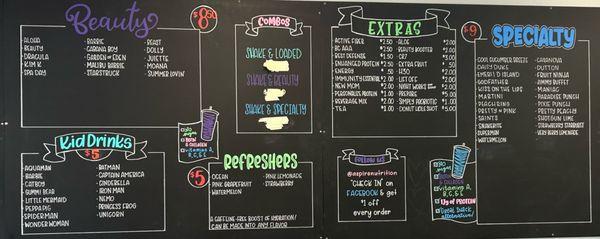 Beauty
$8.50
ALOHA
BEAUTY
DRACULA
KIM K
SPA DAY
BARBIE
CABANA BOY
GARDEN OF EDEN
MALIBU BARBIE
STARSTRUCK
BEAST
DOLLY
JULIETTE
MOANA
SUMMER LOVIN'
COMBOS
SHAKE & LOADED
SHAKE & BEAUTY
SHAKE & SPECIALTY
EXTRAS
ACTIVE FIBER $2.50
BC AAA $2.50
BEST DEFENSE $1.50
ENHANCED PROTEIN $2.50
ENERGY $.50
IMMUNITY ESSENTIAL $2.00
NEW MOM $2.00
PERSONALIZED PROTEIN $1.00
BEVERAGE MIX $2.00
TEA $1.00
ALOE $.50
BEAUTY BOOSTER $2.00
CR7 $3.00
H3O $2.00
LIFT OFF $2.00
NIGHT WORKS $2.00
PREPARE $5.00
SIMPLY PROBIOTIC $1.00
DONUT HOLE SHOT $5.00
$9
SPECIALTY
COOL CUCUMBER BREEZE
DAISY DUKE
EMERALD ISLAND
GODFATHER
KISS ON THE LIPS
MARTINI
PEACH RING
PRETTY IN PINK
SAINTS
SNAKEBITE
SUPERMAN
WATERMELON
CASANOVA
DUTTON
FRUIT NINJA
JIMMY BUFFET
MANIAC
PARADISE PUNCH
PIXIE PUNCH
PRETTY PEACHY
SHOTGUN LIME
STRAWBERRY STARBURST
VERY BERRY LEMONADE
Kid DRINKS
$5
AQUAMAN
BARBIE
CATBOY
GUMMI BEAR
LITTLE MERMAID
PEPPA PIG
SPIDERMAN
WONDER WOMAN
BATMAN
CAPTAIN AMERICA
CINDERELLA
IRON MAN
NEMO
PRINCESS FROG
UNICORN
$5
REFRESHERS
OCEAN
PINK GRAPEFRUIT
WATERMELON
PINK LEMONADE
STRAWBERRY
A CAFFEINE-FREE BOOST OF HYDRATION!
CAN BE MADE INTO ANY FLAVOR
FOLLOW US
@aspirenutrition
"CHECK IN" on
FACEBOOK & get
$1 off
every order